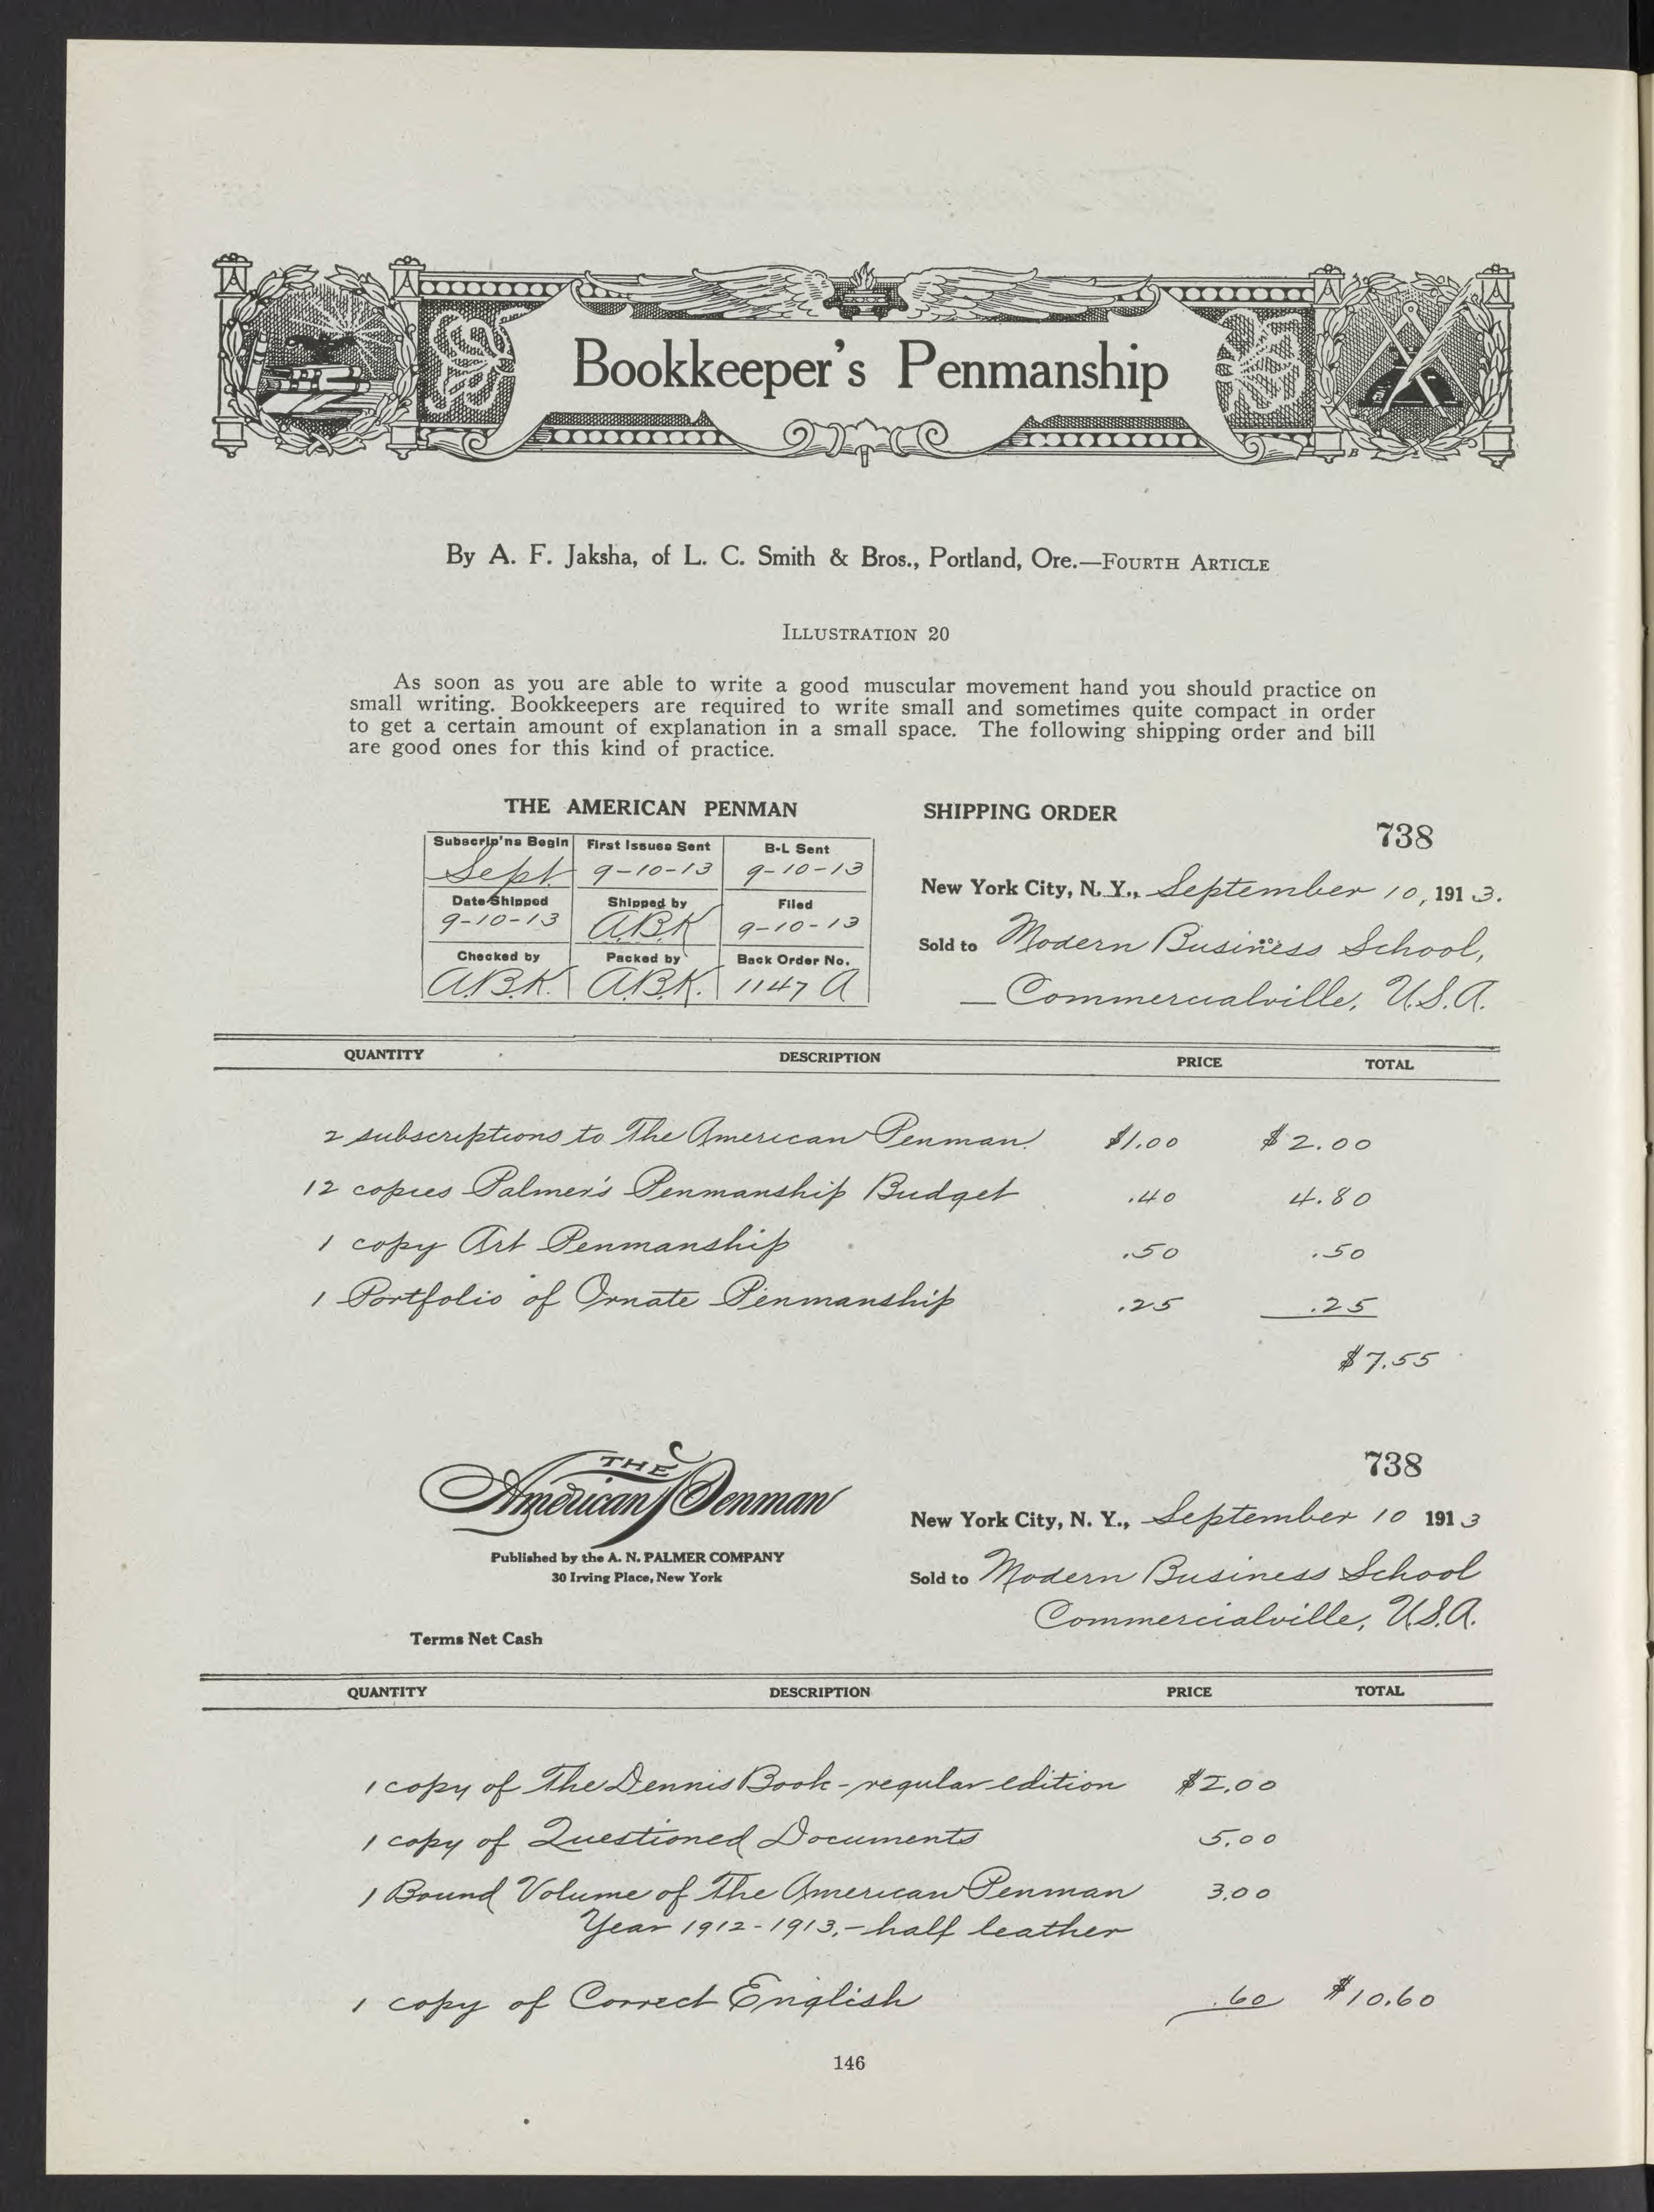 Bookkeeper's Penmanship
By A. F. Jaksha, of L. C. Smith & Bros., Portland, Ore.—Fourth Article
Illustration 20
As soon as you are able to write a good muscular movement hand you should practice on
small writing. Bookkeepers are required to write small and sometimes quite compact in order
to get a certain amount of explanation in a small space. The following shipping order and bill
are good ones for this kind of practice.
THE AMERICAN PENMAN
Subscrip'ns Begin First Issues Sent B-L Sent
Sept. 9-10-13 9-10-13
Date Shipped Shipped by Filed
9-10-13 A.B.K 9-10-13
Checked by Packed by Back Order No.
A.B.K. A.B.K. 1147 A
SHIPPING ORDER
738
New York City, N. Y., September 10, 1913.
Sold to Modern Business School,
Commercialville, U.S.A.
QUANTITY DESCRIPTION PRICE TOTAL
2 subscriptions to The American Penman. $1.00 $2.00
12 copies Palmer's Penmanship Budget .40 4.80
1 copy Art Penmanship .50 .50
1 Portfolio of Ornate Penmanship .25 .25
$7.55
THE
American Penman
Published by the A. N. PALMER COMPANY
30 Irving Place, New York
Terms Net Cash
738
New York City, N. Y., September 10 1913
Sold to Modern Business School
Commercialville, U.S.A.
QUANTITY DESCRIPTION PRICE TOTAL
1 copy of The Dennis Book - regular edition $2.00
1 copy of Questioned Documents 5.00
1 Bound Volume of The American Penman 3.00
Year 1912-1913.- half leather
1 copy of Correct English .60 $10.60
146